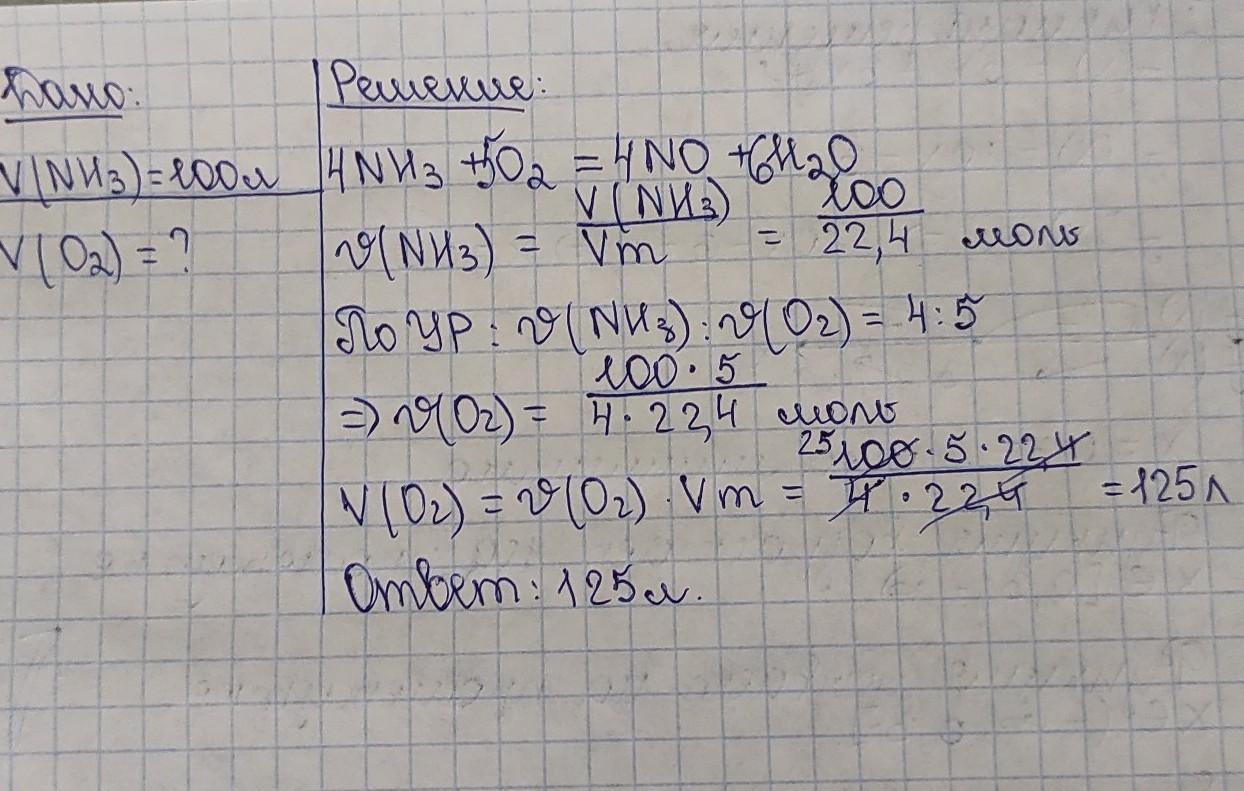 Дано:
V(NH3)=100л
V(O2)=?
Решение:
4NH3 +5O2 = 4NO +6H2O
ν(NH3) = V(NH3)/Vm = 100/22,4 моль
По УР: ν(NH3):ν(O2)= 4:5
=> ν(O2)= 100·5/4·22,4 моль
V(O2)=ν(O2)·Vm = 25 100·5·22,4/4·22,4 =125л
Ответ: 125л.